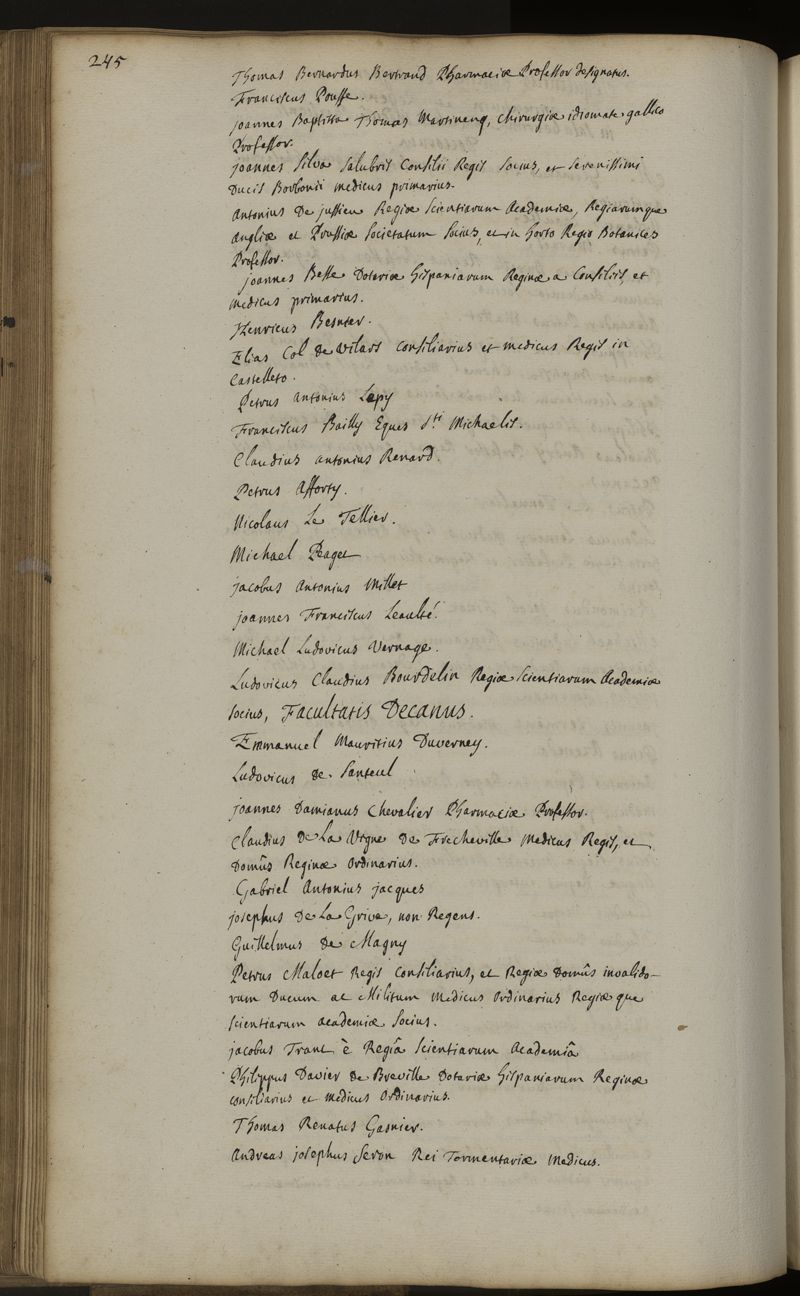 245
Thomas Bernardus Bertrand Pharmaciæ Professor designatus.
Franciscus Pousse.
joannes Baptista Thomas Martinenq, Chirurgiæ idiomate gallico
Professor.
joannes Silva Salubris Consilii Regis Socius, et Serenissimi
Ducis Borbonii medicus primarius.
Antonius De jussieu Regiæ Scientiarum Academiæ, Regiarumque
Angliæ et Prussiæ Societatum Socius, et in horto Regio Botanices
Professor.
joannes Besse Dotariæ hispaniarum Reginæ a Consiliis, et
medicus primarius.
Henricus Besnier.
Elias Col de Vilars Consiliarius et medicus Regis in
Castelleto.
Petrus Antonius Lepy
Franciscus Bailly Eques Sti Michaelis.
Claudius Antonius Renard.
Petrus Afforty.
Nicolaus Le Tellier.
Michael Peaget
jacobus Antonius Millet
joannes Franciscus Leaulté.
Michael Ludovicus Vernage.
Ludovicus Claudius Bourdelin Regiæ Scientiarum Academiæ
Socius, Facultatis Decanus.
Emmanuel Mauritius Duverney.
Ludovicus de Santeul
joannes Damianus Chevalier Pharmaciæ Professor.
Claudius De La Vigne De Frecheville Medicus Regis, et
Domûs Reginæ Ordinarius.
Gabriel Antonius jacques
josephus De La Grive, non Regens.
Guillelmus de Magny
Petrus Maloet Regis Consiliarius, et Regiæ Domûs invalido-
rum Ducum ac Militum medicus Ordinarius Regiæ que
Scientiarum academiæ Socius.
jacobus Trant è Regiâ Scientiarum Academiâ
Philippus Davier de Breville Dotariæ hispaniarum Reginæ
consiliarius et medicus Ordinarius.
Thomas Renatus Gasnier.
Andreas josephus Seron Rei Tormentariæ Medicus.